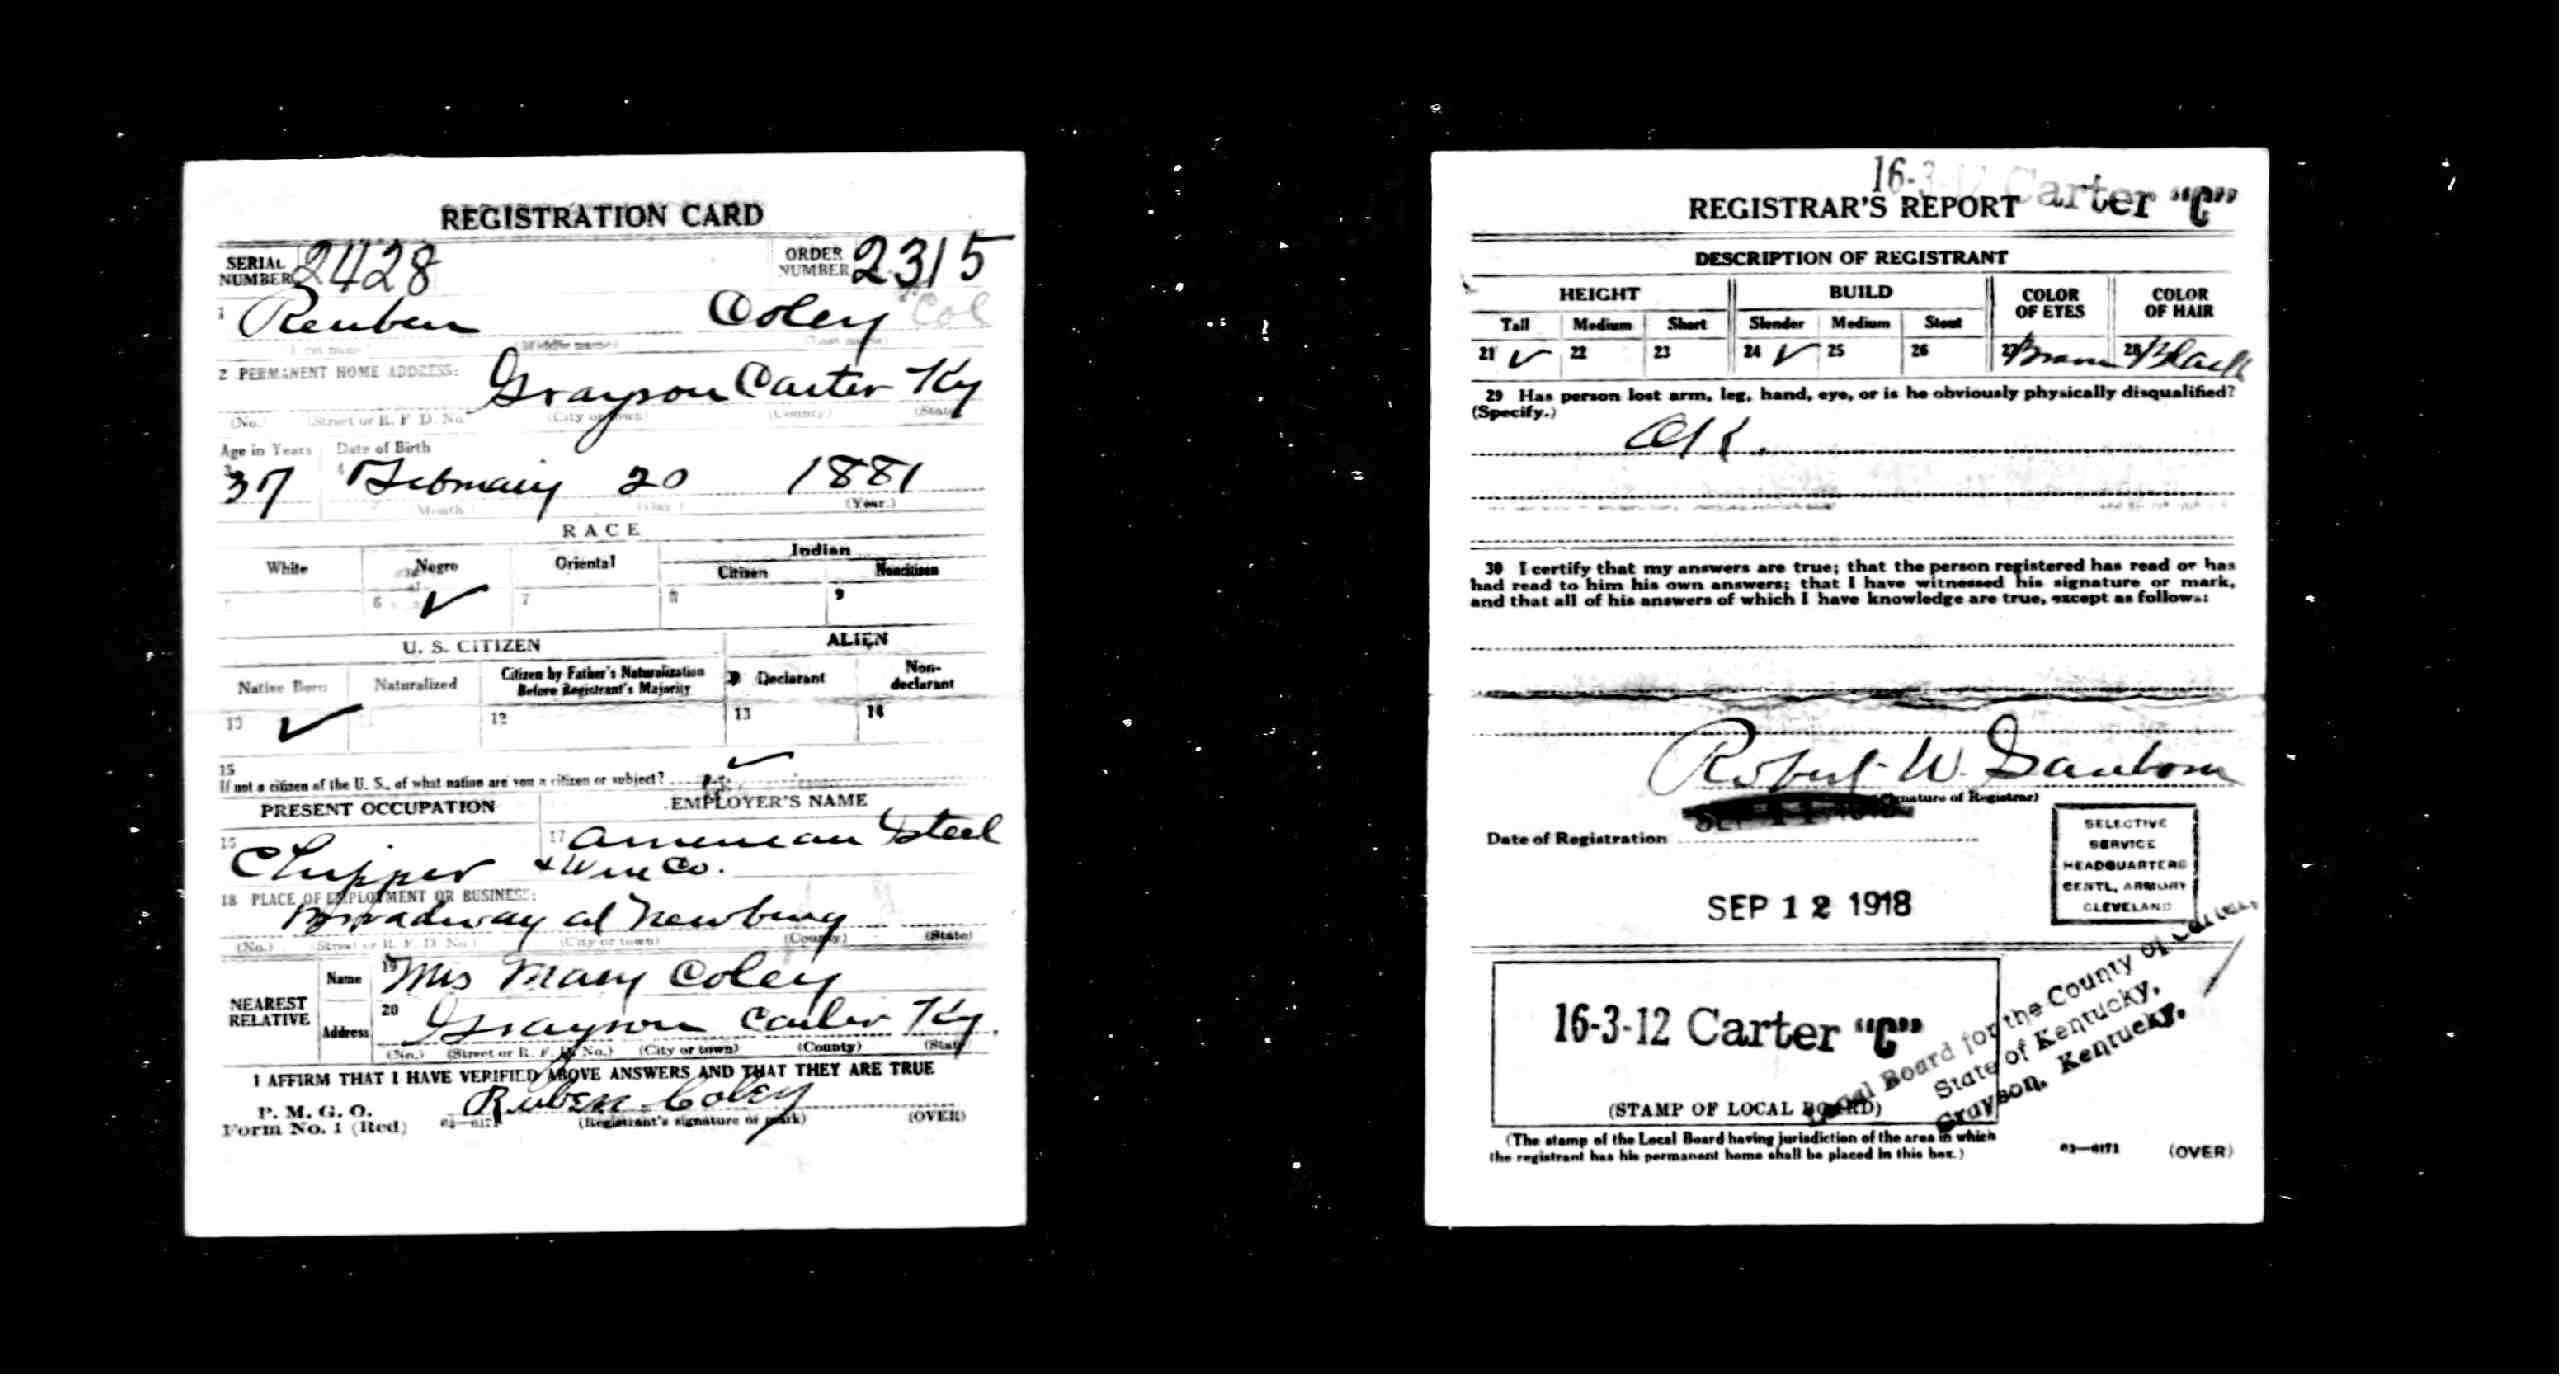 REGISTRATION CARD
SERIAL NUMBER 2428 ORDER NUMBER 2315
1 Reuben Coley Col
(First name) (Middle name) (Last name)
2 PERMANENT HOME ADDRESS: Grayson Carter Ky
(No.) (Street or R. F. D. No.) (City or town) (County) (State)
Age in Years Date of Birth
3 37 4 February 20 1881
(Month) (Day) (Year.)
RACE
White Negro Oriental Indian
Citizen Noncitizen
6 ✓ 7 8 9
U. S. CITIZEN ALIEN
Native Born Naturalized Citizen by Father's Naturalization Before Registrant's Majority Declarant Non-declarant
10 ✓ 12 13 14
15 ✓
If not a citizen of the U. S., of what nation are you a citizen or subject?
PRESENT OCCUPATION EMPLOYER'S NAME
16 Chipper 17 American Steel
& Wire Co.
18 PLACE OF EMPLOYMENT OR BUSINESS:
Broadway at Newburg
(No.) (Street or R. F. D. No.) (City or town) (County) (State)
NEAREST RELATIVE
Name 19 Mrs Mary Coley
Address 20 Grayson Carter Ky.
(No.) (Street or R. F. D. No.) (City or town) (County) (State)
I AFFIRM THAT I HAVE VERIFIED ABOVE ANSWERS AND THAT THEY ARE TRUE
P. M. G. O.
Form No. 1 (Red) Ruben Coley
(Registrant's signature or mark) (OVER)
16-3-12 Carter "C"
REGISTRAR'S REPORT
DESCRIPTION OF REGISTRANT
HEIGHT BUILD COLOR OF EYES COLOR OF HAIR
Tall Medium Short Slender Medium Stout
21 ✓ 22 23 24 ✓ 25 26 27 Brown 28 Black
29 Has person lost arm, leg, hand, eye, or is he obviously physically disqualified?
(Specify.)
OK.
30 I certify that my answers are true; that the person registered has read or has
had read to him his own answers; that I have witnessed his signature or mark,
and that all of his answers of which I have knowledge are true, except as follows:
Robert W.
(Signature of Registrar)
Date of Registration
SEP 12 1918
SELECTIVE
SERVICE
HEADQUARTERS
CENTL. ARMORY
CLEVELAND
16-3-12 Carter "C"
(STAMP OF LOCAL BOARD)
Local Board for the County of Carter,
State of Kentucky,
Grayson, Kentucky.
(The stamp of the Local Board having jurisdiction of the area in which
the registrant has his permanent home shall be placed in this box.)
03—6171 (OVER)